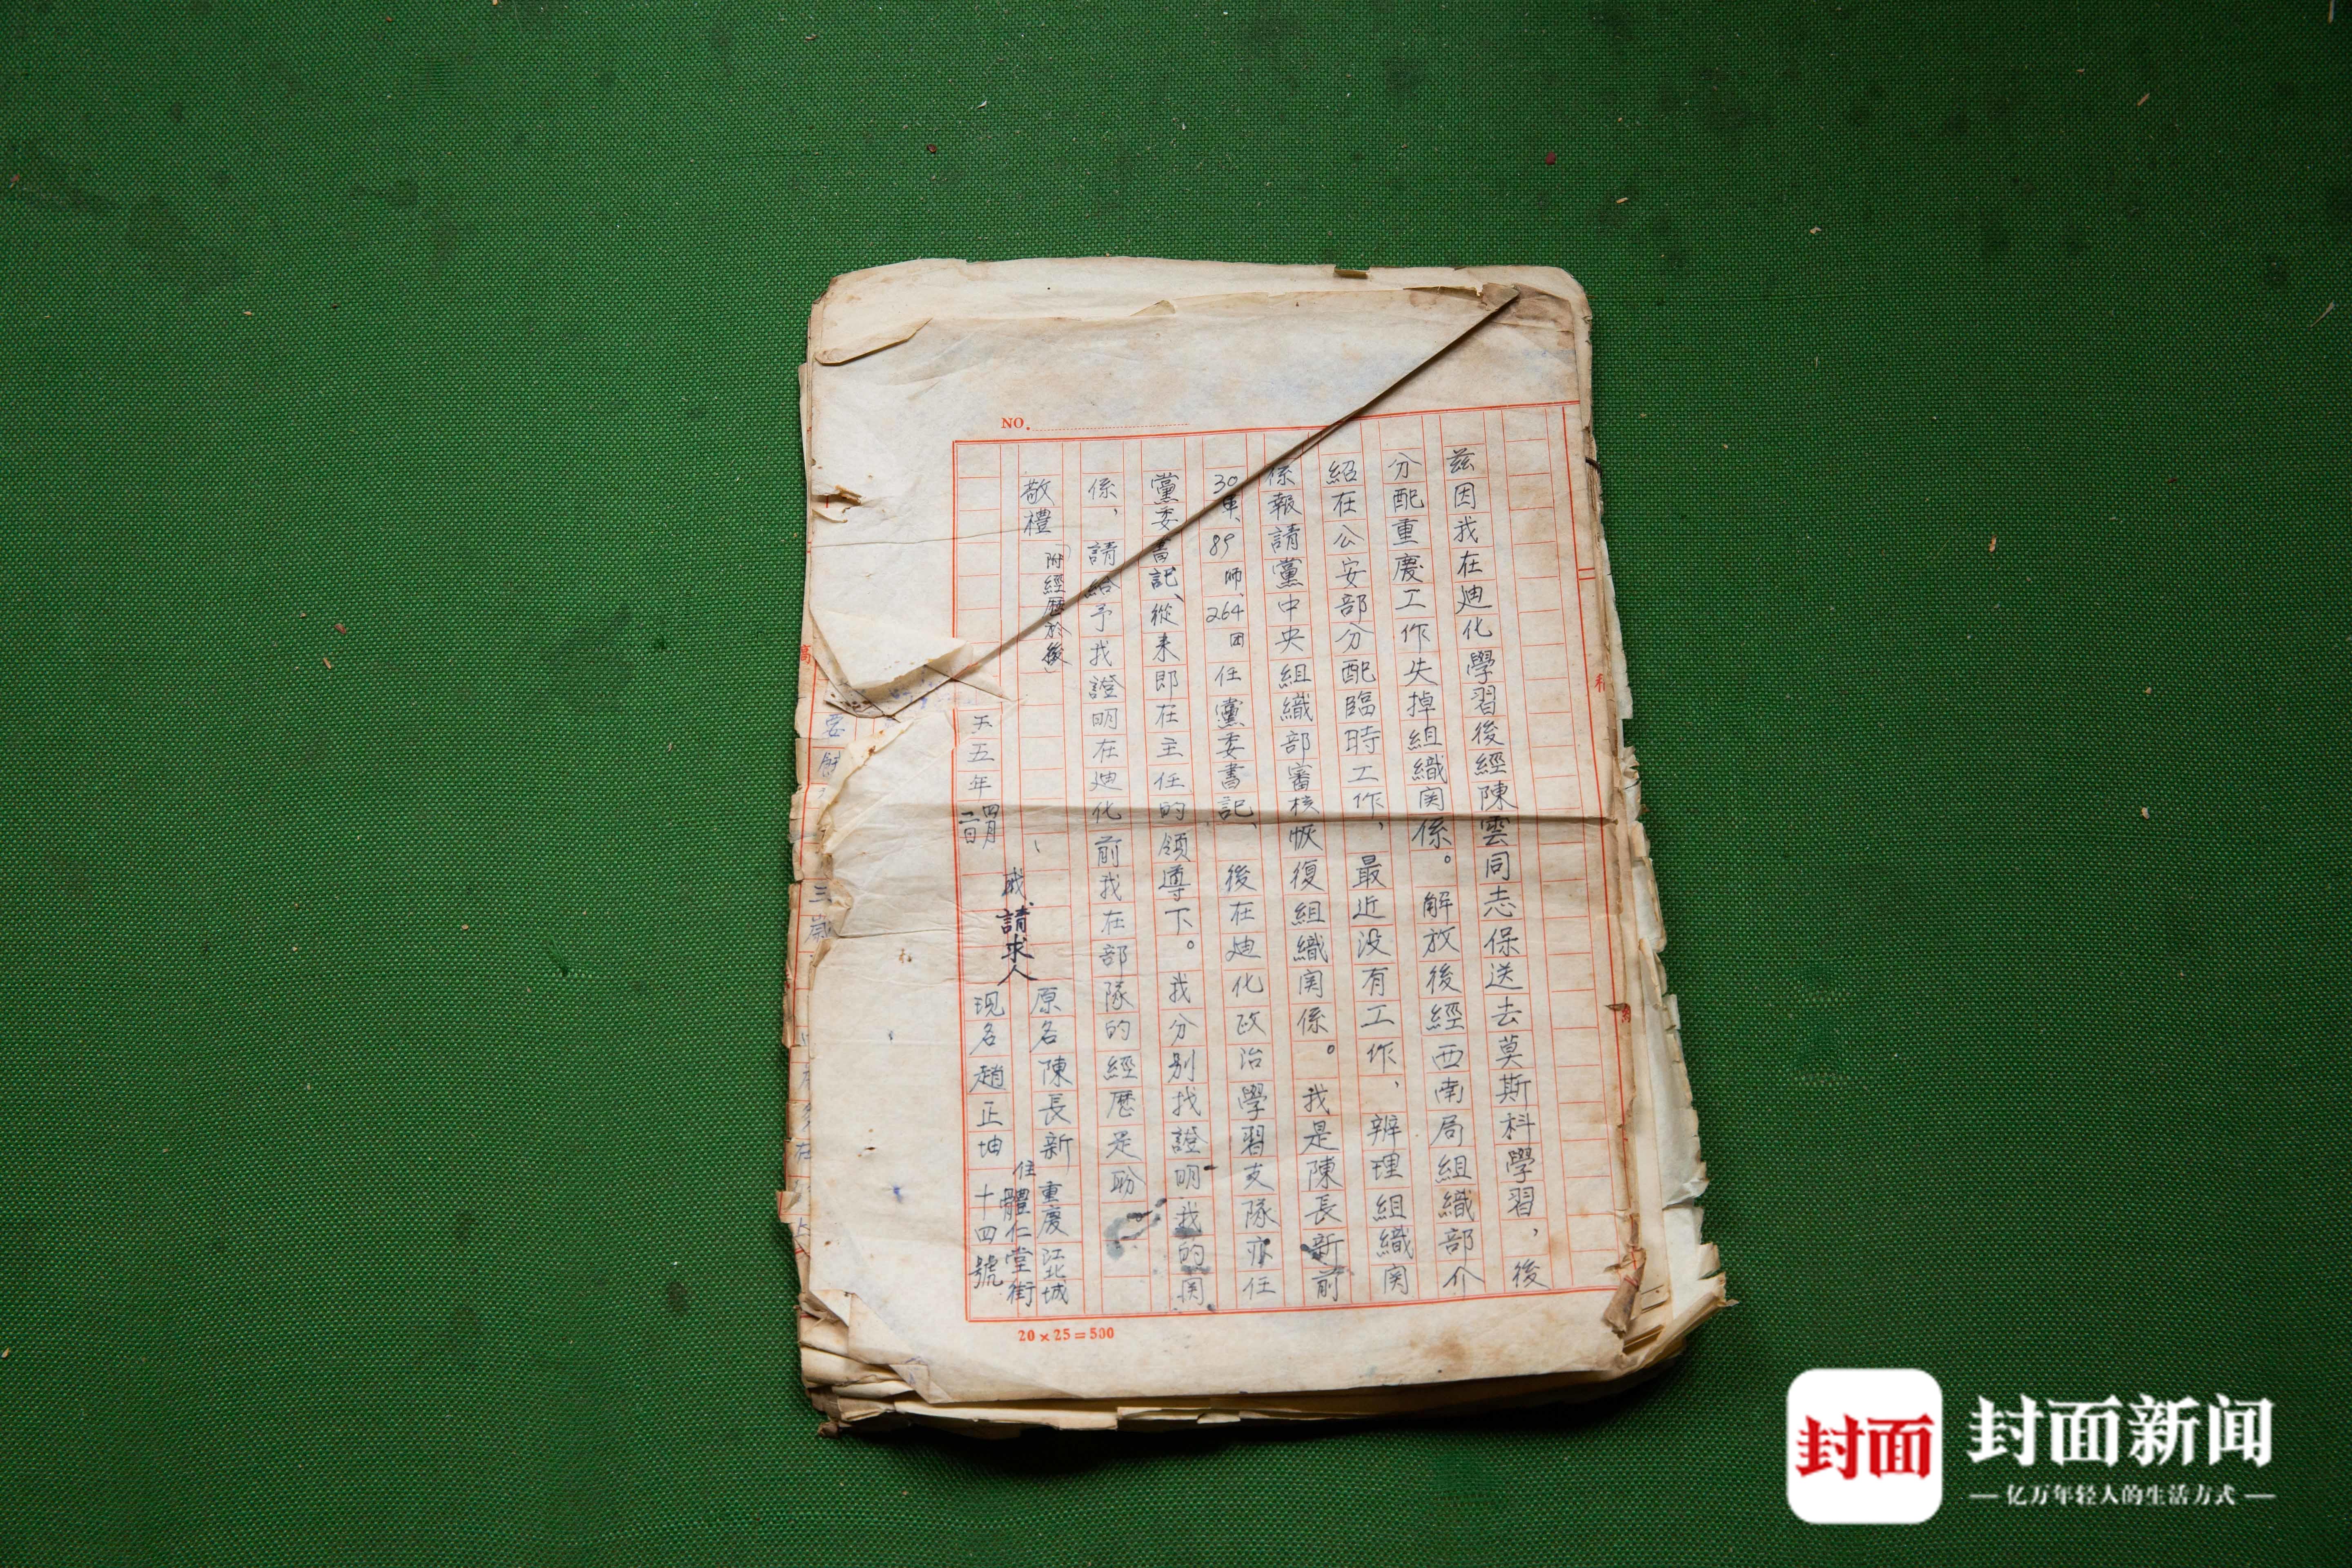 NO.
茲因我在廸化學習後經陳雲同志保送去莫斯科學習，後
分配重慶工作失掉組織関係。解放後經西南局組織部介
紹在公安部分配臨時工作，最近没有工作、辦理組織関
係報請黨中央組織部審核恢復組織関係。我是陳長新前
30軍、89師、264团任黨委書記、後在廸化政治學習支隊亦任
黨委書記、從来即在主任的領導下。我分别找證明我的関
係，請給予我證明在廸化前我在部隊的經歷是盼
敬禮
（附經歷於後）
請求人
原名陳長新
现名趙正坤
住重慶江北城
體仁堂街
十四號
五五年四月二日
20×25=500
封面
封面新闻
亿万年轻人的生活方式